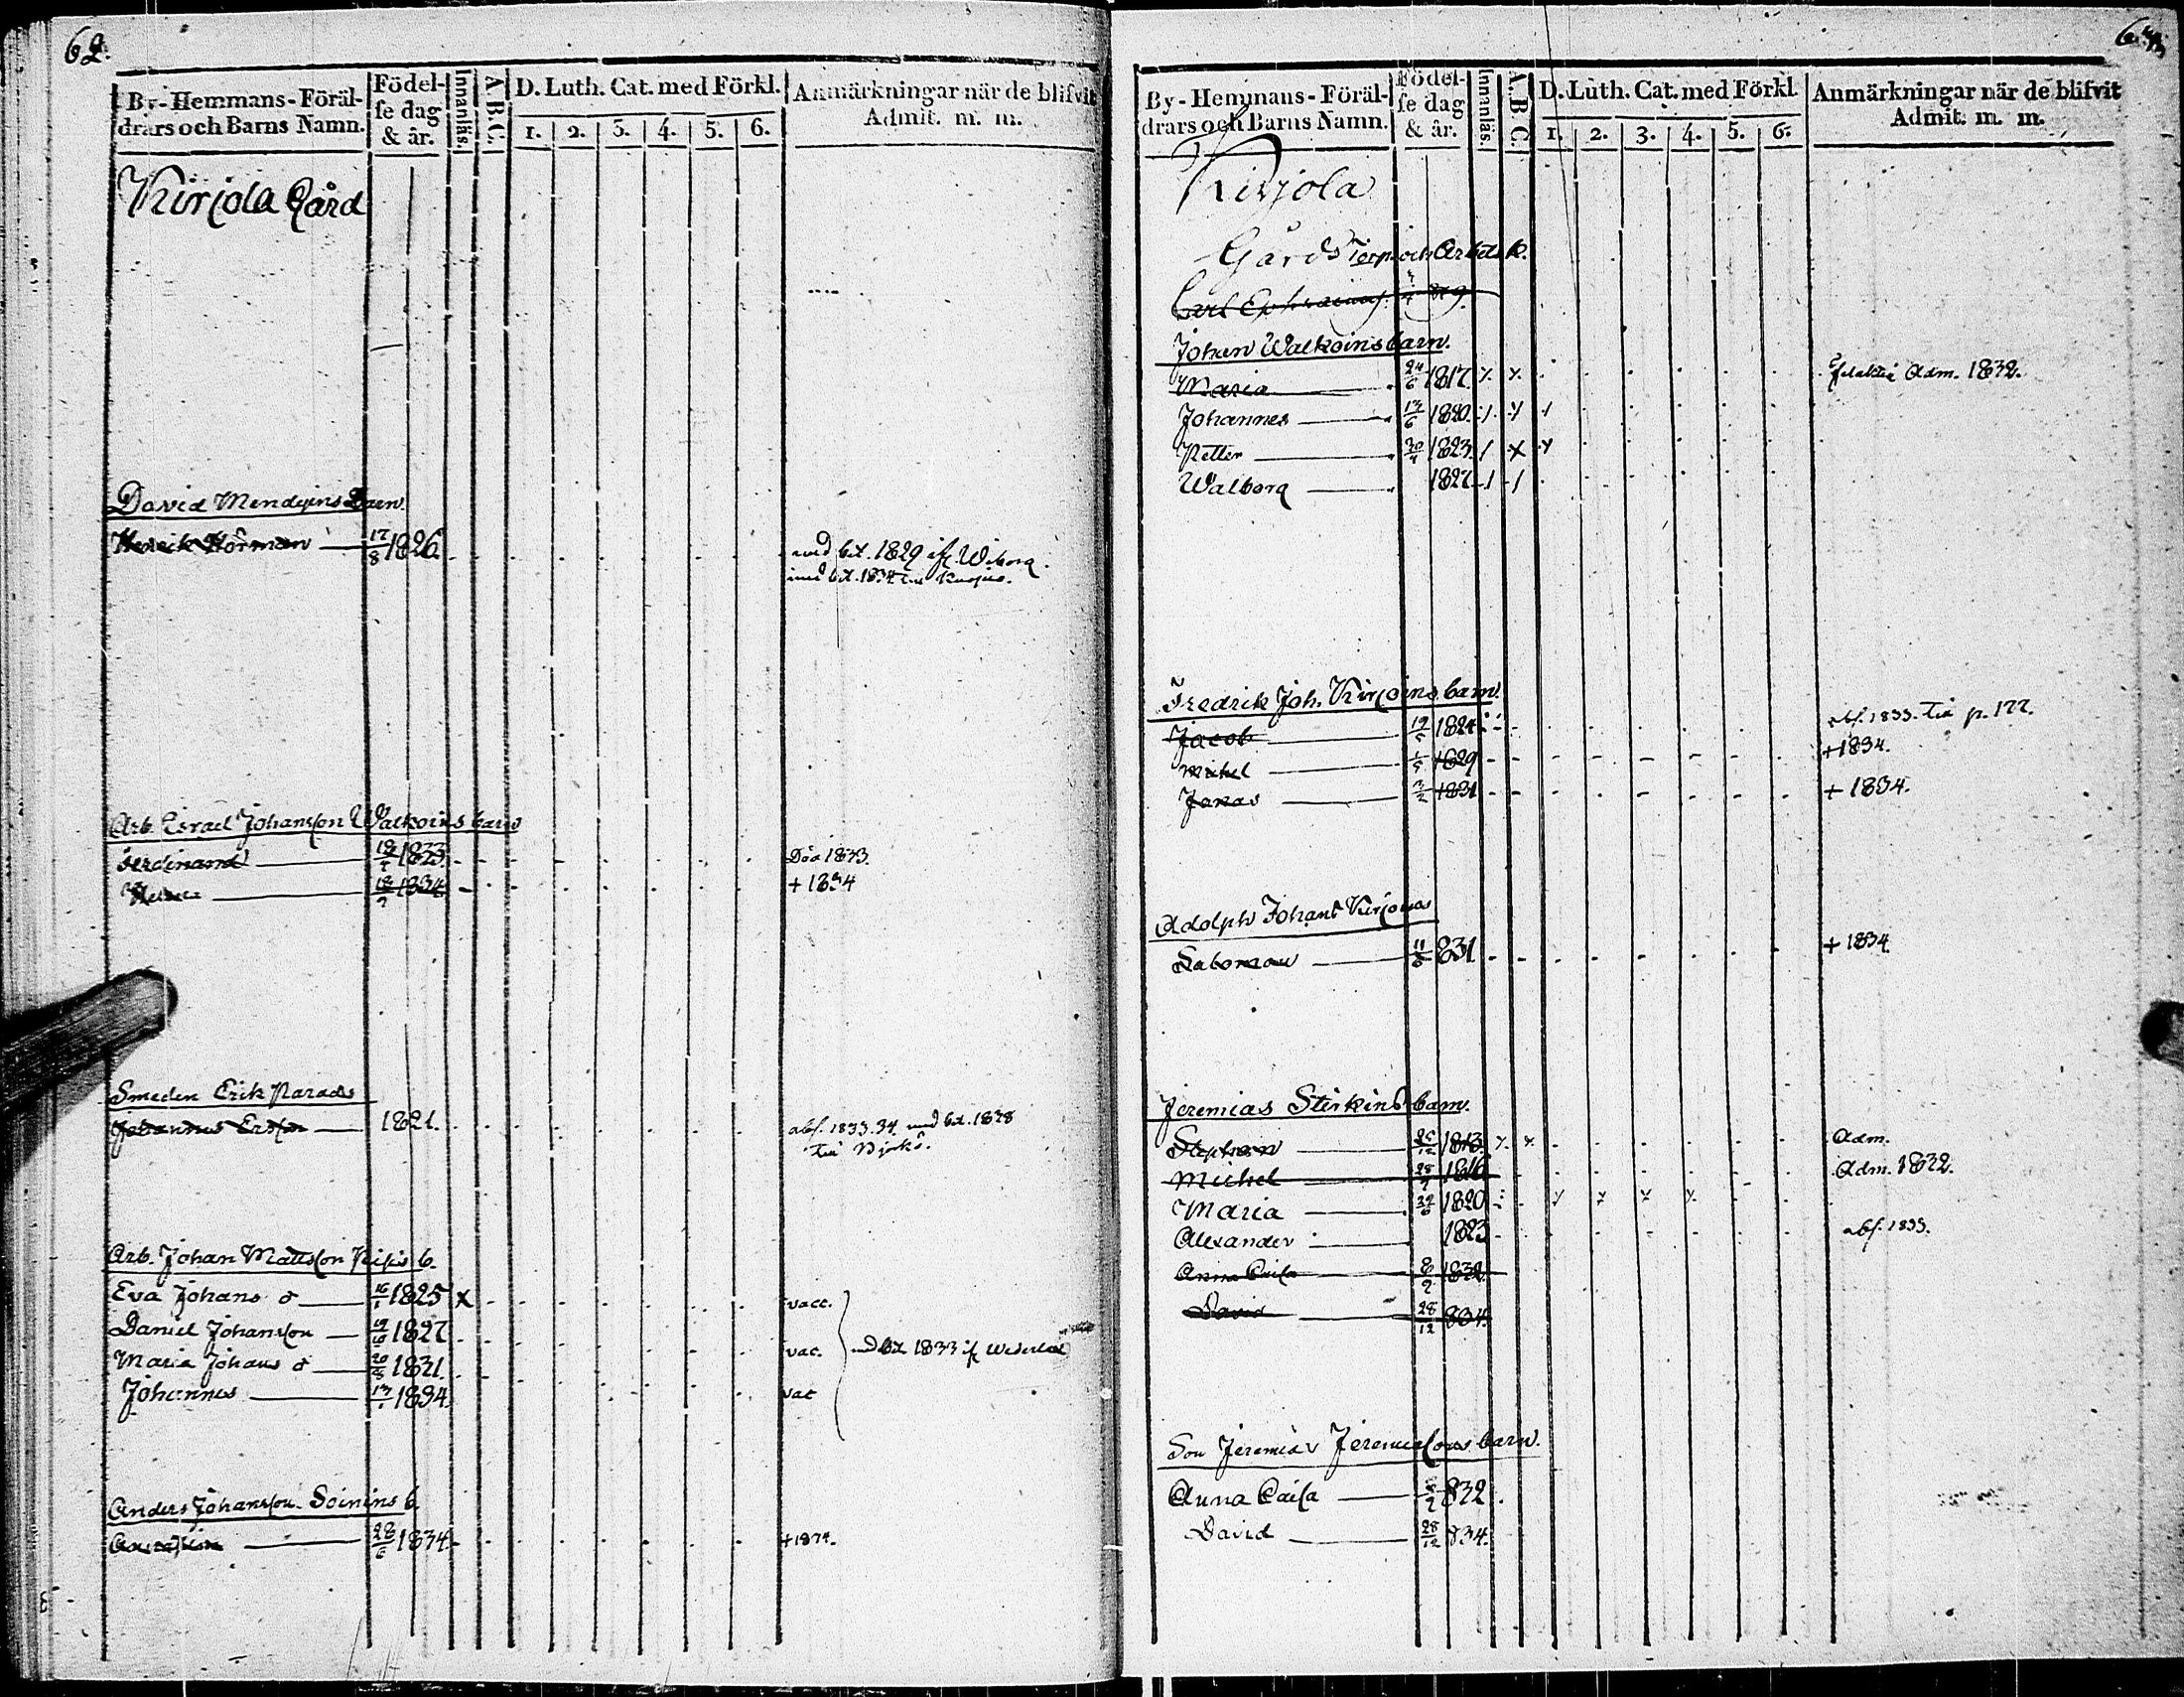 62.
By-Hemmans-Föräl-
drars och Barns Namn.
Födel-
se dag
& år.
Innanläs.
A.B.C.
D. Luth. Cat. med Förkl.
1. 2. 3. 4. 5. 6.
Anmärkningar när de blifvit
Admit. m. m.
Kirjola Gård
David Mendgins Barn
Henrik Hörman 17/8 1826. med bet. 1829 ifr. Wiborg.
med bet. 1834
Arb. Esrael Johansson Walkoins barn
Ferdinand 1833 Döa 1833.
1834 + 1834
Smeden Erik Parades
Johannes Ersson 1821. abs. 1833.34 med bet. 1838
till Björkö.
Arb. Johan Mattsson b.
Eva Johans d 16/1 1825 x vacc.
Daniel Johansson 1827 vac. med bet. 1833 ifr
Maria Johans d 1831.
Johannes 1834. vac
Anders Johansson Soinins b.
28/6 1834.
By-Hemmans-Föräl-
drars och Barns Namn.
Födel-
se dag
& år.
Innanläs.
A.B.C.
D. Luth. Cat. med Förkl.
1. 2. 3. 4. 5. 6.
Anmärkningar när de blifvit
Admit. m. m.
Kirjola
Gårds Torp och Arbets k.
Carl Ephraims.
Johan Walkoins barn.
Maria 24/6 1817 Adm. 1832.
Johannes 13/6 1820.
Petter 1823.
Walborg 1827
Fredrik Joh. Kirjoins barn.
Jacob 1824 abs. 1833. till p. 177.
Mikel 1829 + 1834.
Jonas 1831 + 1834.
Adolph Johans Kirjonas
Salomon 831 + 1834
Jeremias Sterkins barn.
Stephan 1813 Adm.
Michel 1816 Adm. 1832.
Maria 1820
Alexander 1823 abs. 1833.
Anna Caisa 8/2 1832
David 28/12 834.
Son Jeremias Jeremiassons barn.
Anna Caisa 832
David 28/12 834.